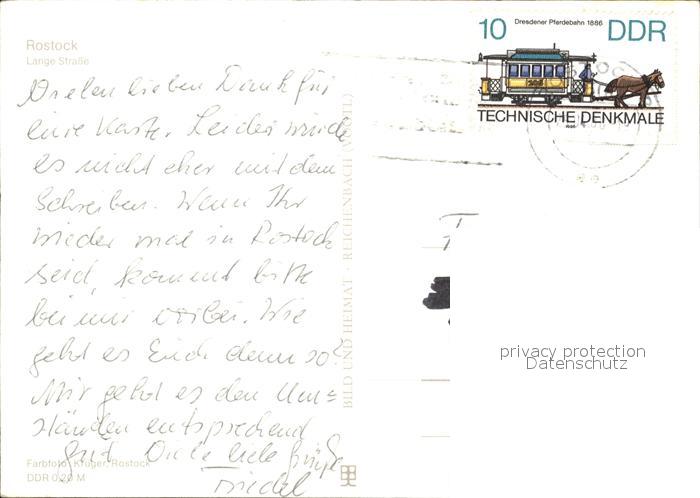 Rostock
Lange Straße
Vielen lieben Dank für
eure Karte. Leider wurde
es nicht eher mit dem
Schreiben. Wenn Ihr
wieder mal in Rostock
seid, kommt bitte
bei mir vorbei. Wie
geht es Euch denn so?
Mir geht es den Um=
ständen entsprechend
gut. Viele liebe Grüße
Friedel
Farbfoto: Krüger, Rostock
DDR 0,20 M
BILD UND HEIMAT · REICHENBACH
10 Dresdener Pferdebahn 1886 DDR
TECHNISCHE DENKMALE
1986
privacy protection
Datenschutz